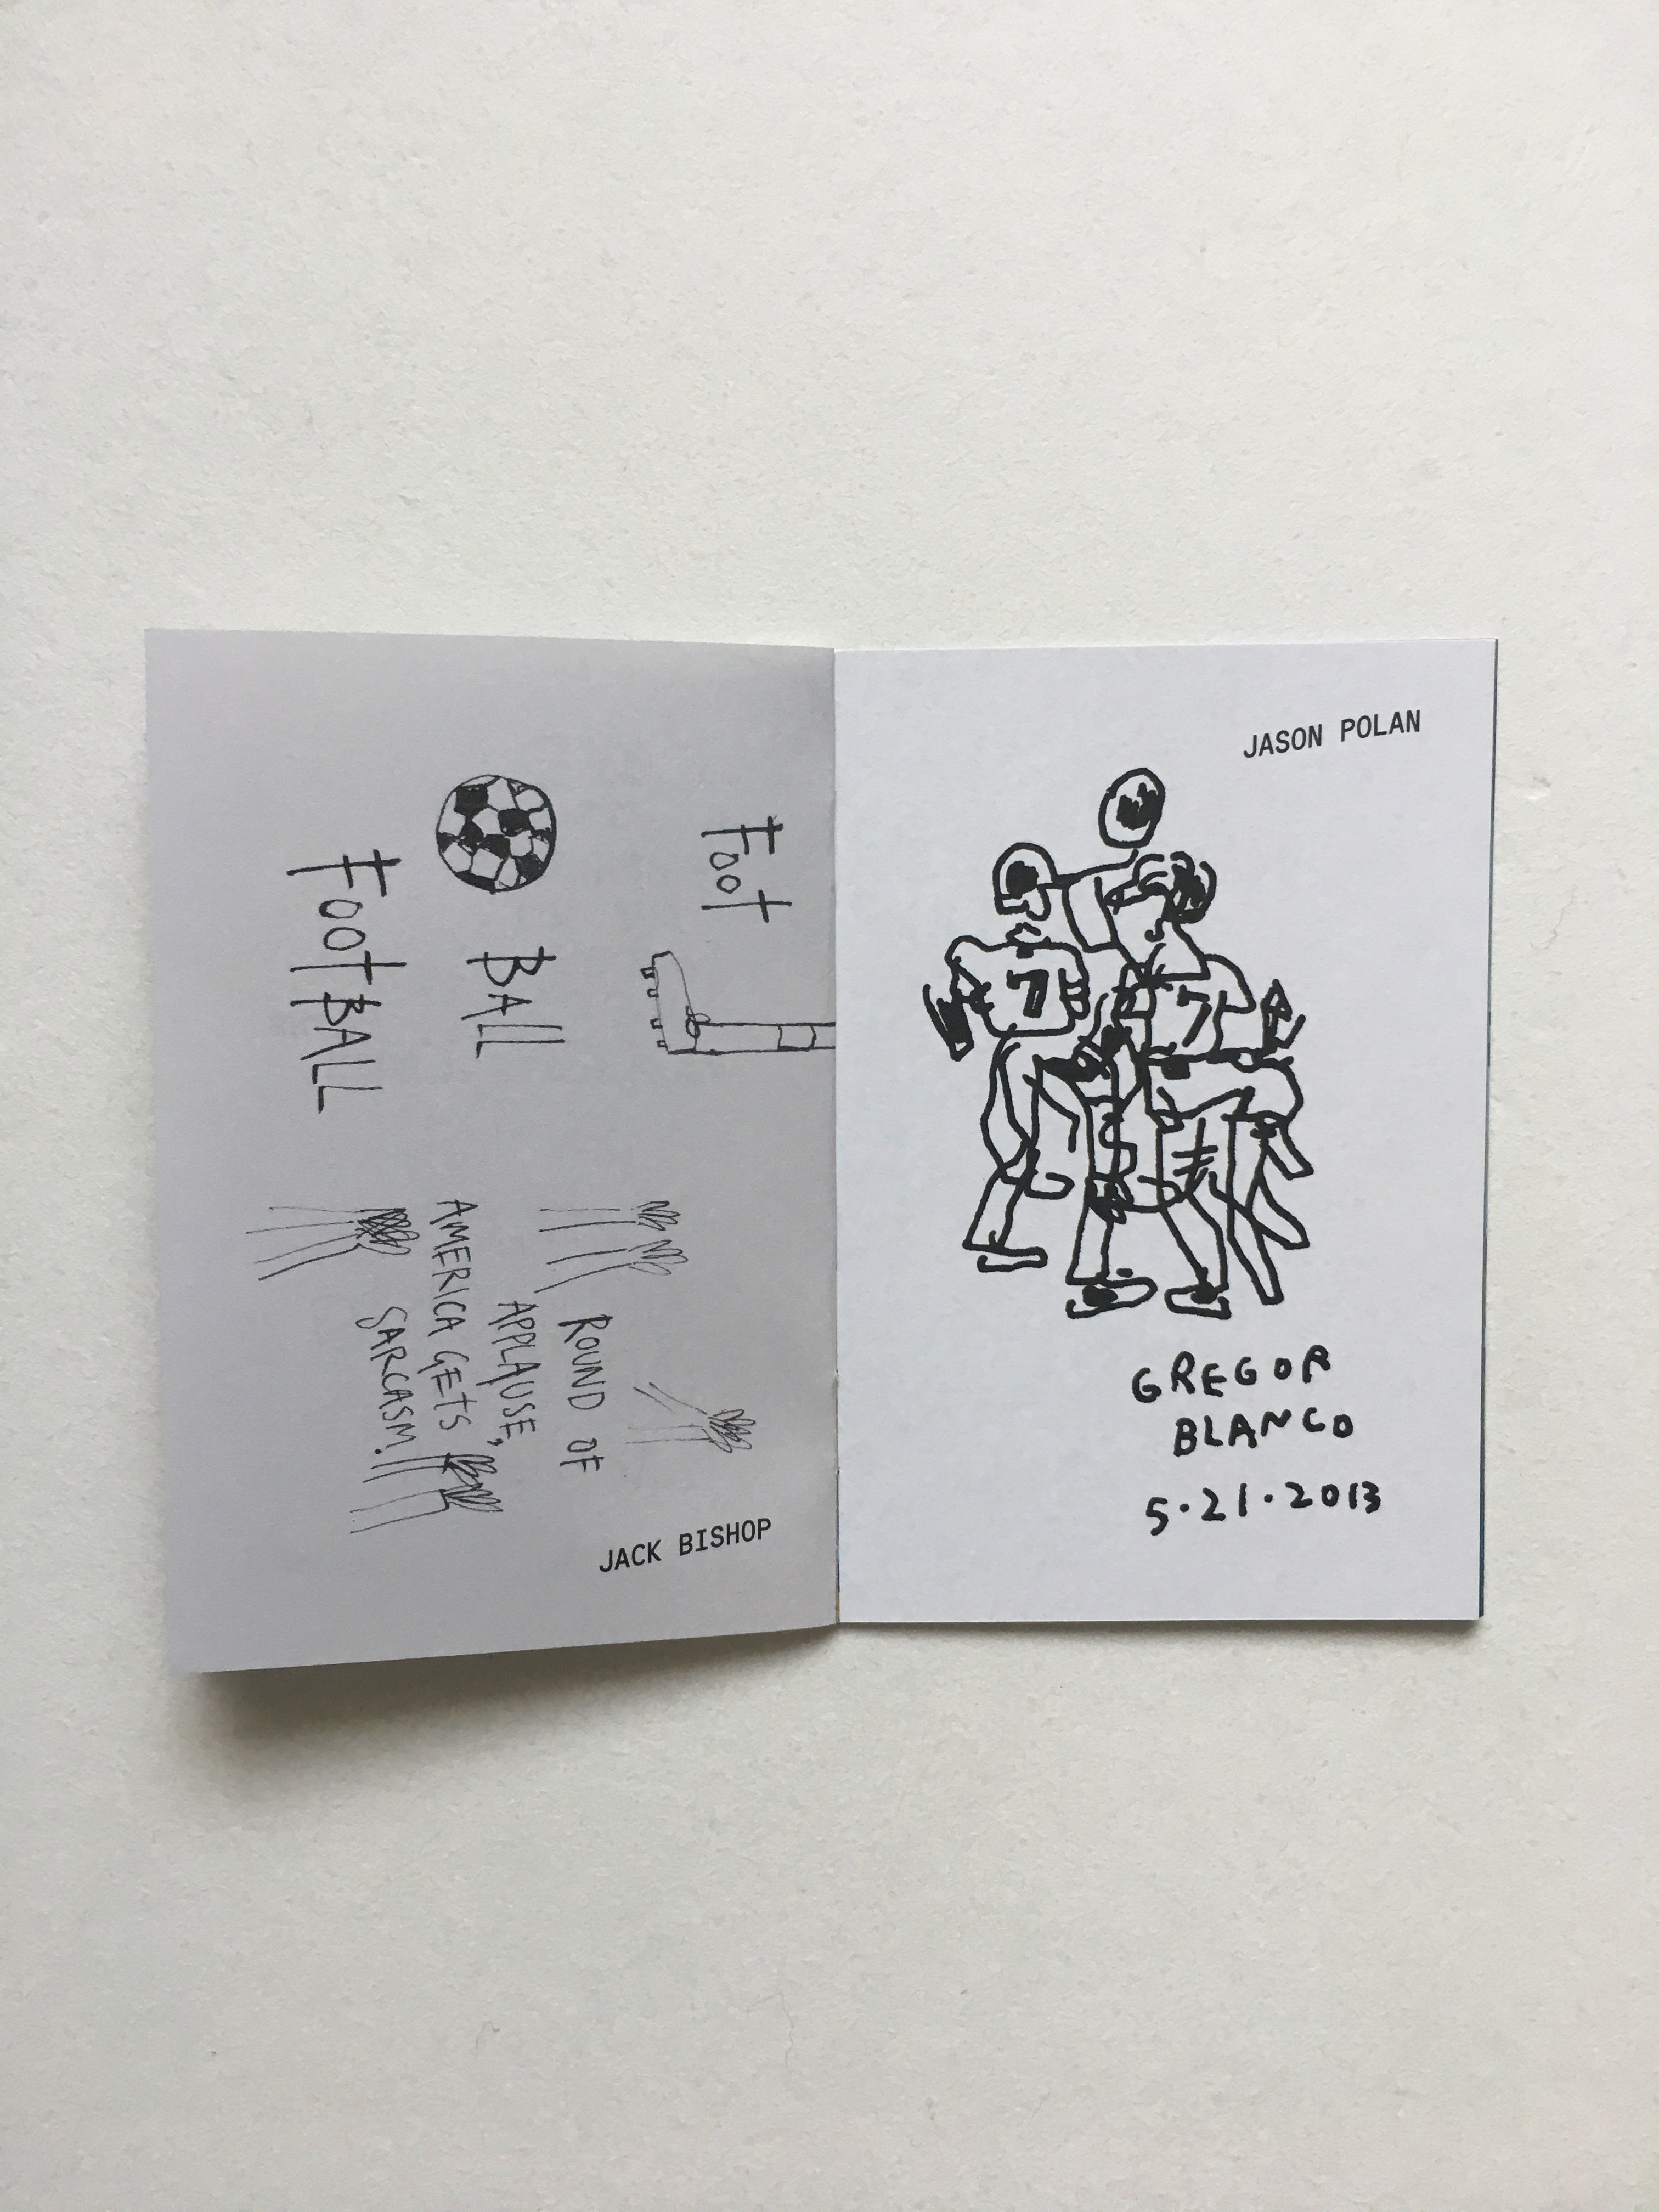 Foot
BALL
FootBALL
ROUND OF
APPLAUSE,
AMERICA GETS
SARCASM.
JACK BISHOP
JASON POLAN
7
7
GREGOR
BLANCO
5.21.2013